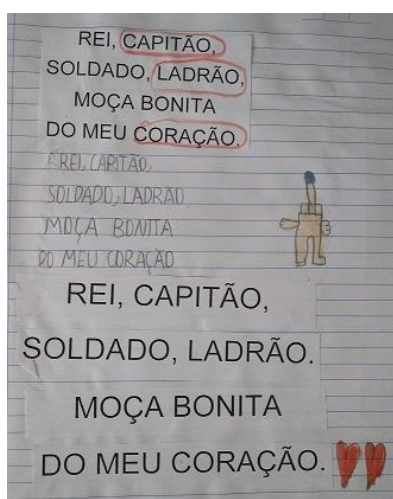 REI, CAPITÃO,
SOLDADO, LADRÃO,
MOÇA BONITA
DO MEU CORAÇÃO.
RREI, CAPITÃO,
SOLDADO, LADRÃO
MOÇA BONITA
DO MEU CORAÇÃO
REI, CAPITÃO,
SOLDADO, LADRÃO.
MOÇA BONITA
DO MEU CORAÇÃO.